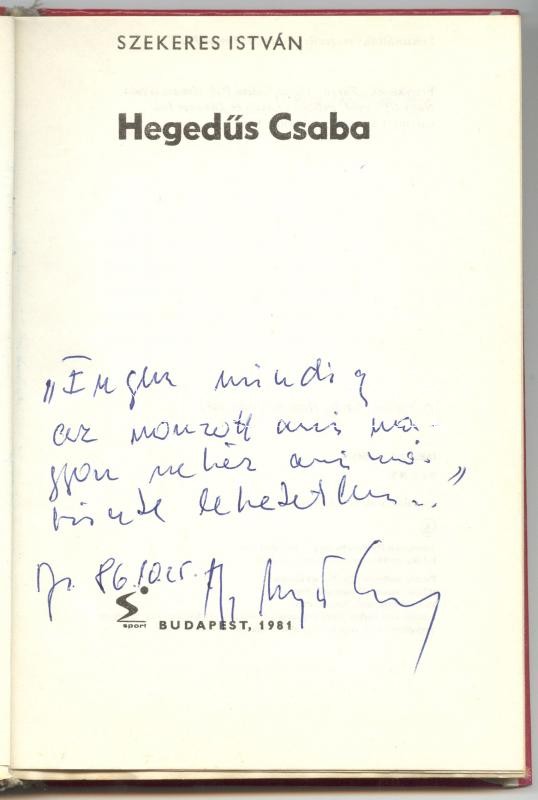 SZEKERES ISTVÁN
Hegedűs Csaba
„Engem mindig
az vonzott ami na-
gyon nehéz ami má
szinte lehetetlen..."
86.10.
sport BUDAPEST, 1981